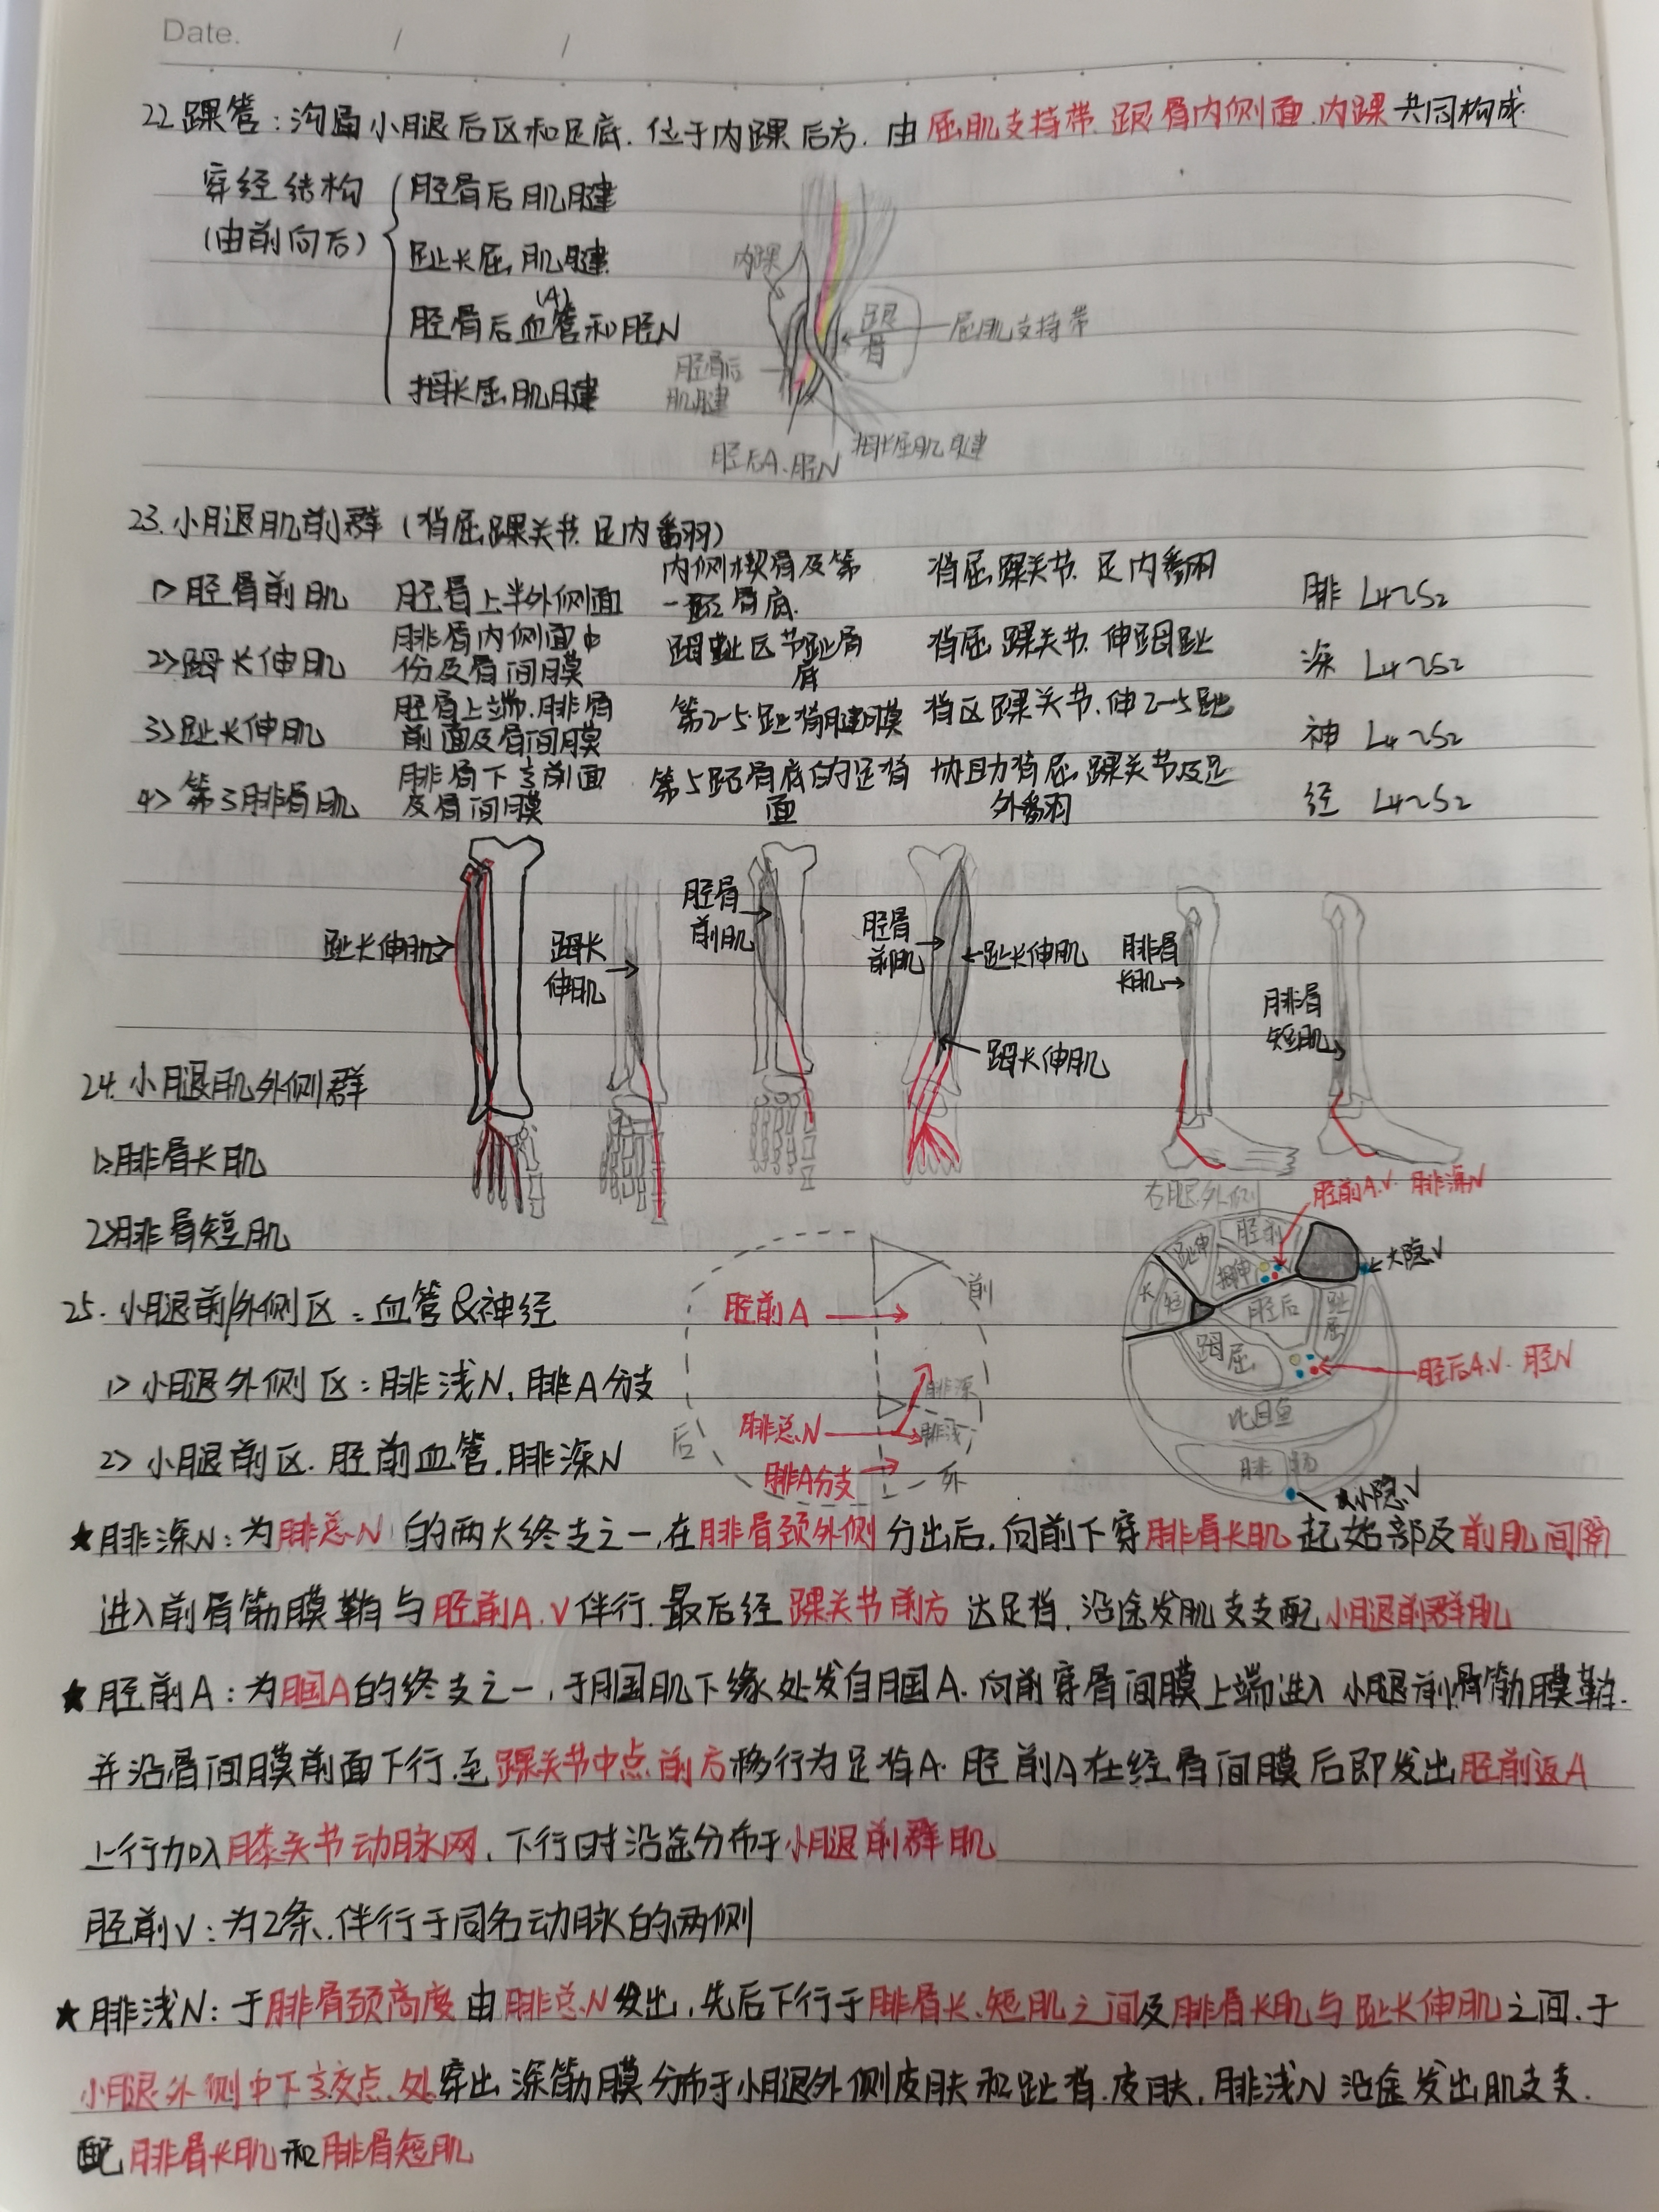 Date. / /
22. 踝管：沟通小腿后区和足底. 位于内踝后方. 由屈肌支持带. 跟骨内侧面. 内踝共同构成.
穿经结构
(由前向后)
胫骨后肌腱
趾长屈肌腱
胫骨后血管(A)和胫N
拇长屈肌腱
内踝
跟骨
屈肌支持带
胫骨后肌腱
胫后A.胫N
拇长屈肌腱
23. 小腿肌前群 (背屈踝关节. 足内翻)
1> 胫骨前肌 胫骨上半外侧面 内侧楔骨及第一跖骨底. 背屈踝关节. 足内翻 腓 L4~S2
2> 踇长伸肌 腓骨内侧面中份及骨间膜 踇趾区节趾骨底 背屈踝关节. 伸踇趾 深 L4~S2
3> 趾长伸肌 胫骨上端.腓骨前面及骨间膜 第2-5趾背腱膜 背区踝关节.伸2-5趾 神 L4~S2
4> 第3腓骨肌 腓骨下⅓前面及骨间膜 第5跖骨底的足背面 协助背屈踝关节及足外翻 经 L4~S2
趾长伸肌
踇长伸肌
胫骨前肌
胫骨前肌
趾长伸肌
踇长伸肌
腓骨长肌
腓骨短肌
24. 小腿肌外侧群
1>腓骨长肌
2>腓骨短肌
右腿外侧
25. 小腿前/外侧区：血管&神经
1> 小腿外侧区：腓浅N. 腓A分支
2> 小腿前区. 胫前血管. 腓深N
前
胫前A
腓深
腓总N
腓浅
后
腓A分支
外
胫前A.V. 腓深N
趾伸
胫前
拇伸
大隐V
长
短
胫后
趾屈
踇屈
胫后A.V. 胫N
比目鱼
腓肠
小隐V
★腓深N：为腓总N的两大终支之一.在腓骨颈外侧分出后.向前下穿腓骨长肌起始部及前肌间隔
进入前骨筋膜鞘与胫前A.V伴行.最后经踝关节前方达足背. 沿途发肌支支配小腿前群肌
★胫前A：为腘A的终支之一.于腘肌下缘处发自腘A.向前穿骨间膜上端进入小腿前骨筋膜鞘.
并沿骨间膜前面下行.至踝关节中点前方移行为足背A. 胫前A在经骨间膜后即发出胫前返A
上行加入膝关节动脉网. 下行时沿途分布于小腿前群肌
胫前V：为2条.伴行于同名动脉的两侧
★腓浅N：于腓骨颈高度由腓总N发出. 先后下行于腓骨长.短肌之间及腓骨长肌与趾长伸肌之间.于
小腿外侧中下⅓交点处穿出深筋膜分布于小腿外侧皮肤和趾背.皮肤. 腓浅N沿途发出肌支支.
配腓骨长肌和腓骨短肌